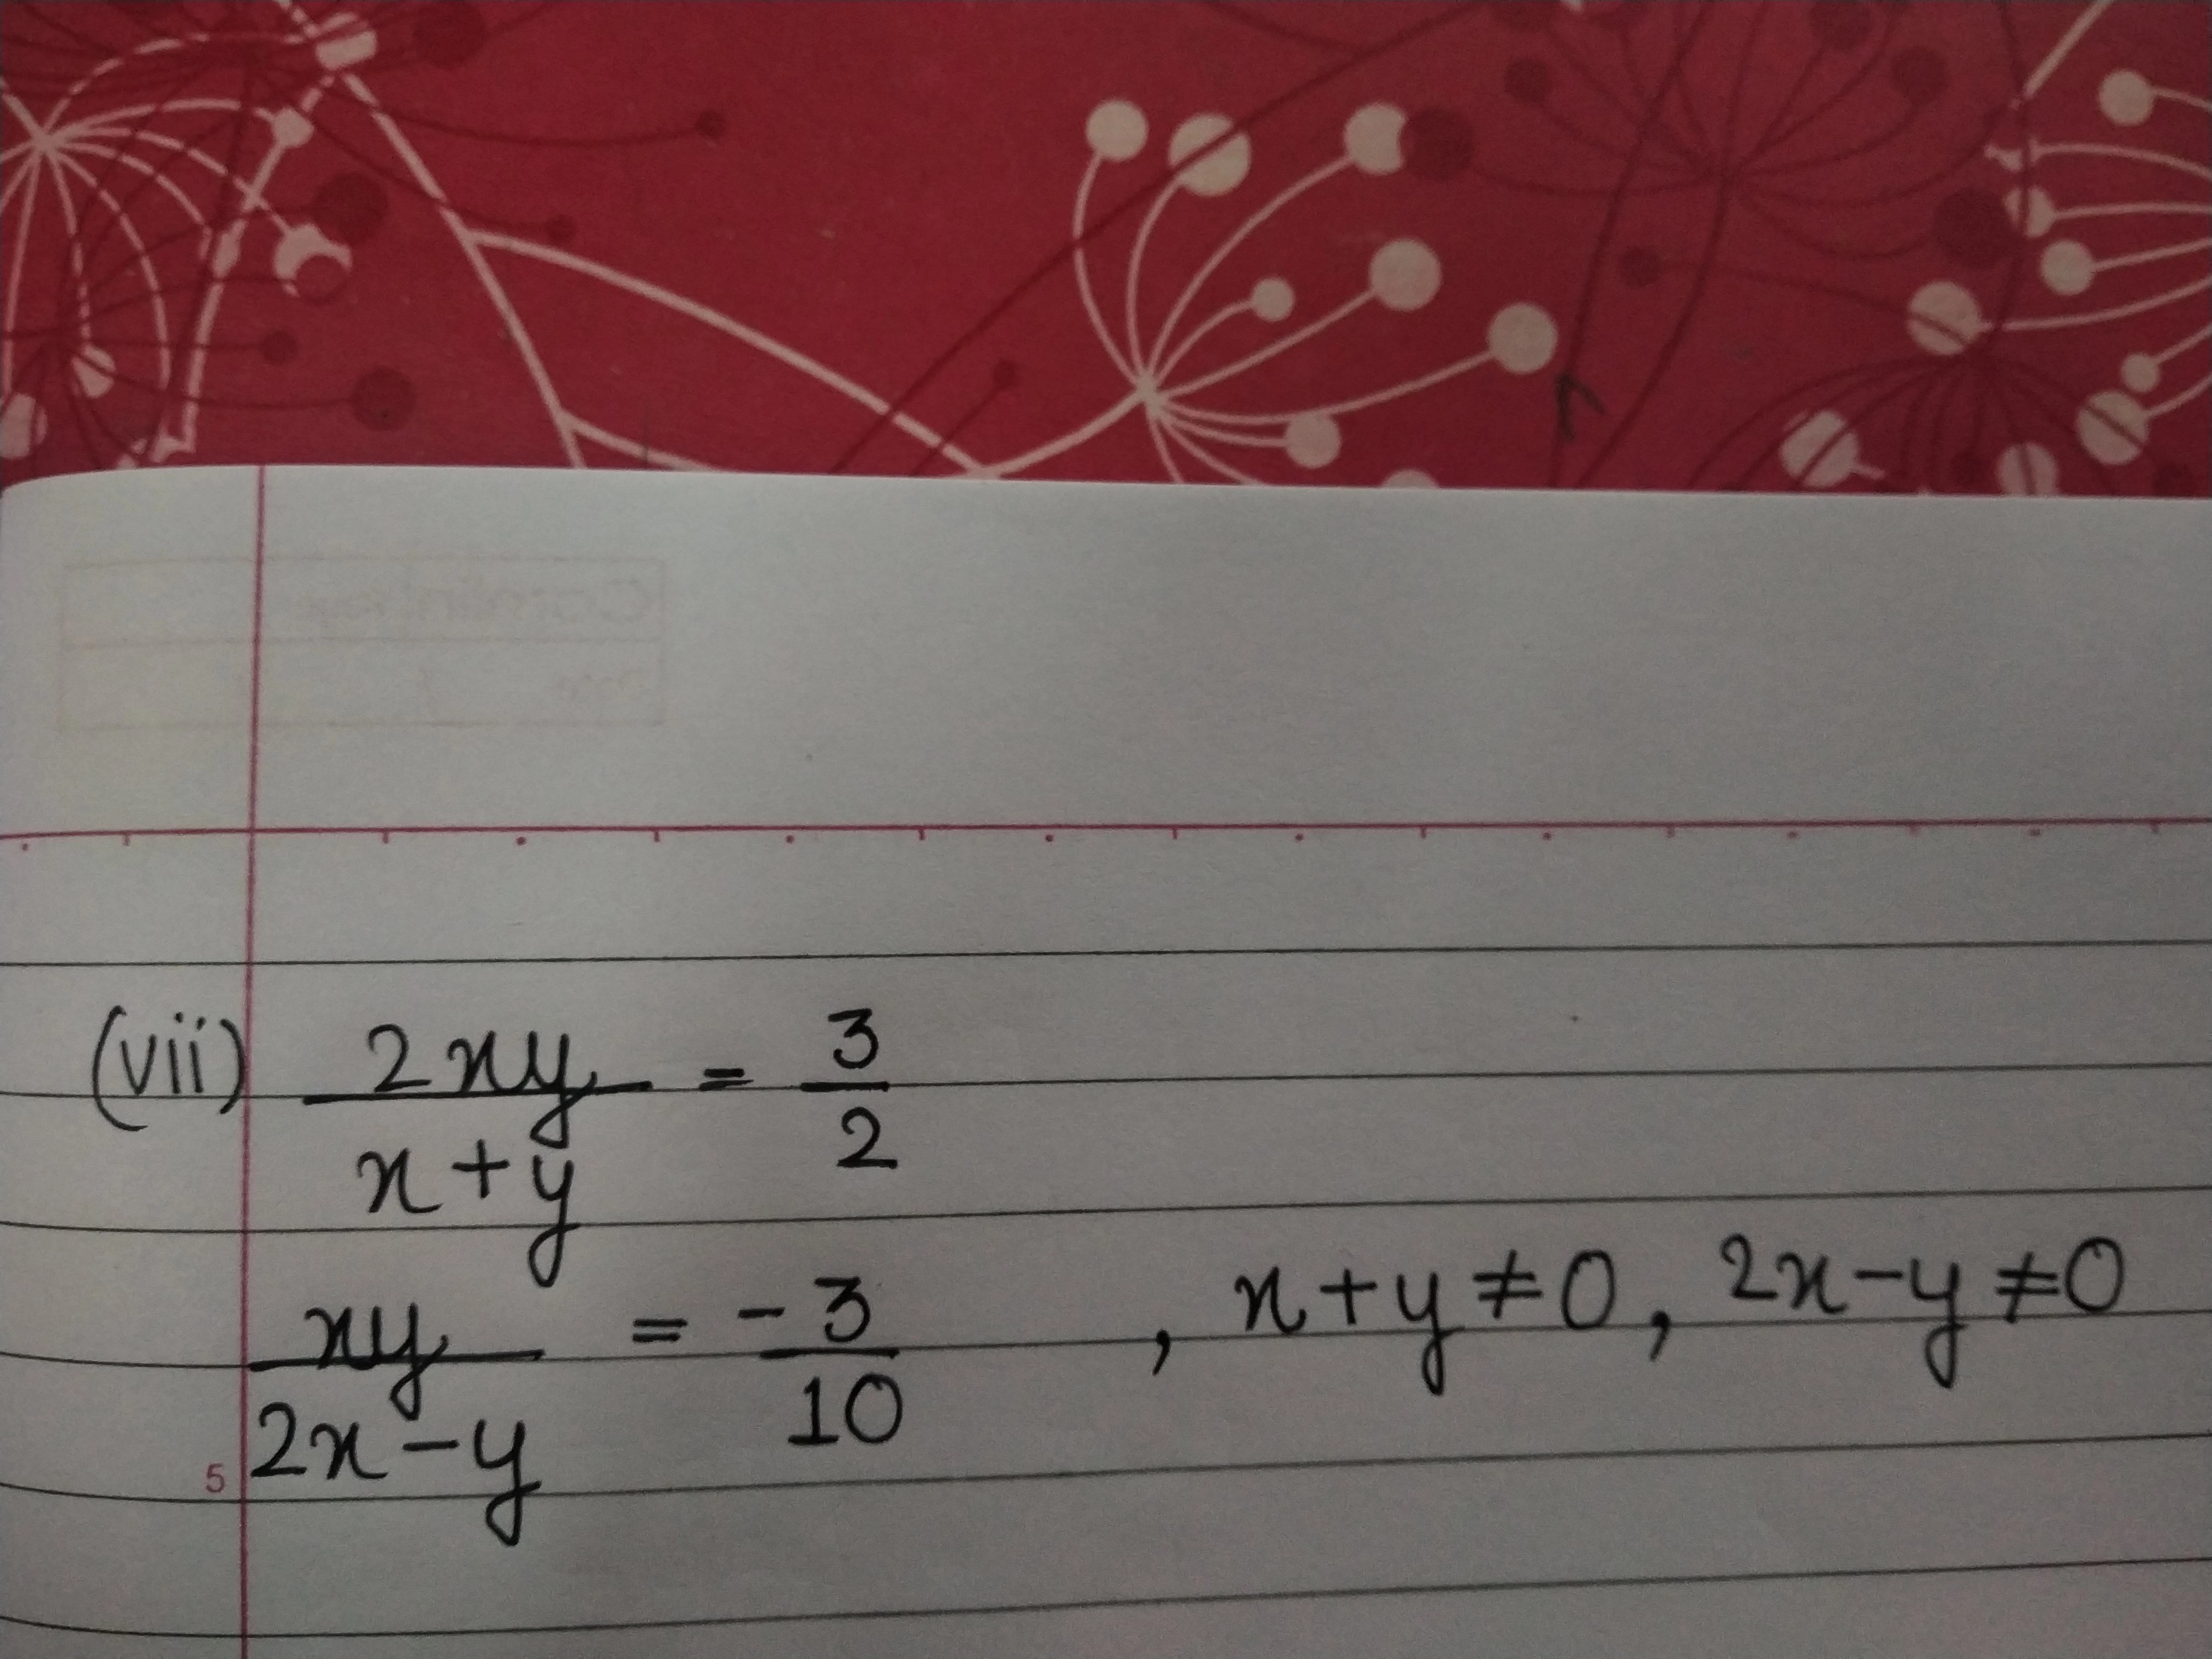 (vii) 2xy/x+y = 3/2
xy/2x-y = -3/10 , x+y≠0, 2x-y≠0
5